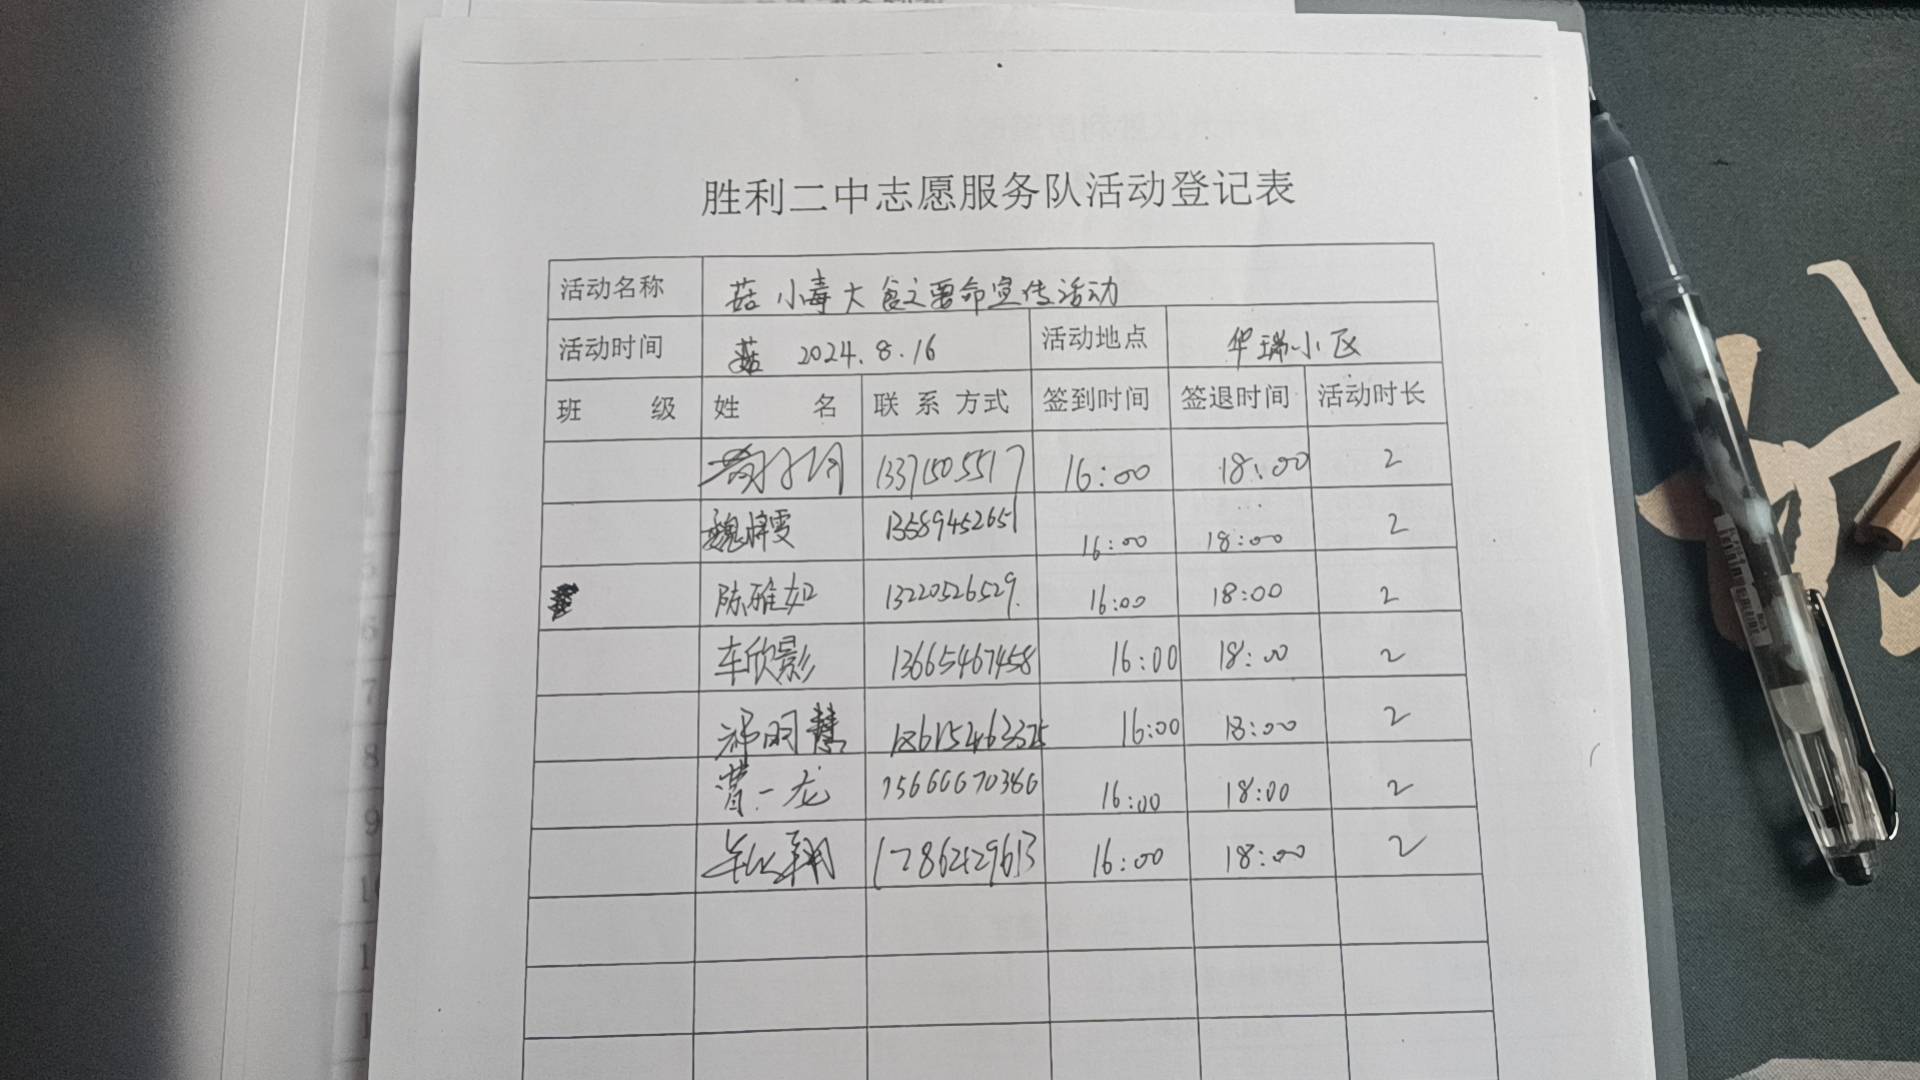 胜利二中志愿服务队活动登记表
活动名称 菇小毒大食之要命宣传活动
活动时间 2024.8.16 活动地点 华瑞小区
班 级 姓 名 联系方式 签到时间 签退时间 活动时长
13371505517 16:00 18:00 2
13589452651 16:00 18:00 2
陈雅如 13220526529. 16:00 18:00 2
车欣影 13665467458 16:00 18:00 2
祁明慧 18615463375 16:00 18:00 2
曹一龙 15666670380 16:00 18:00 2
16:00 18:00 2